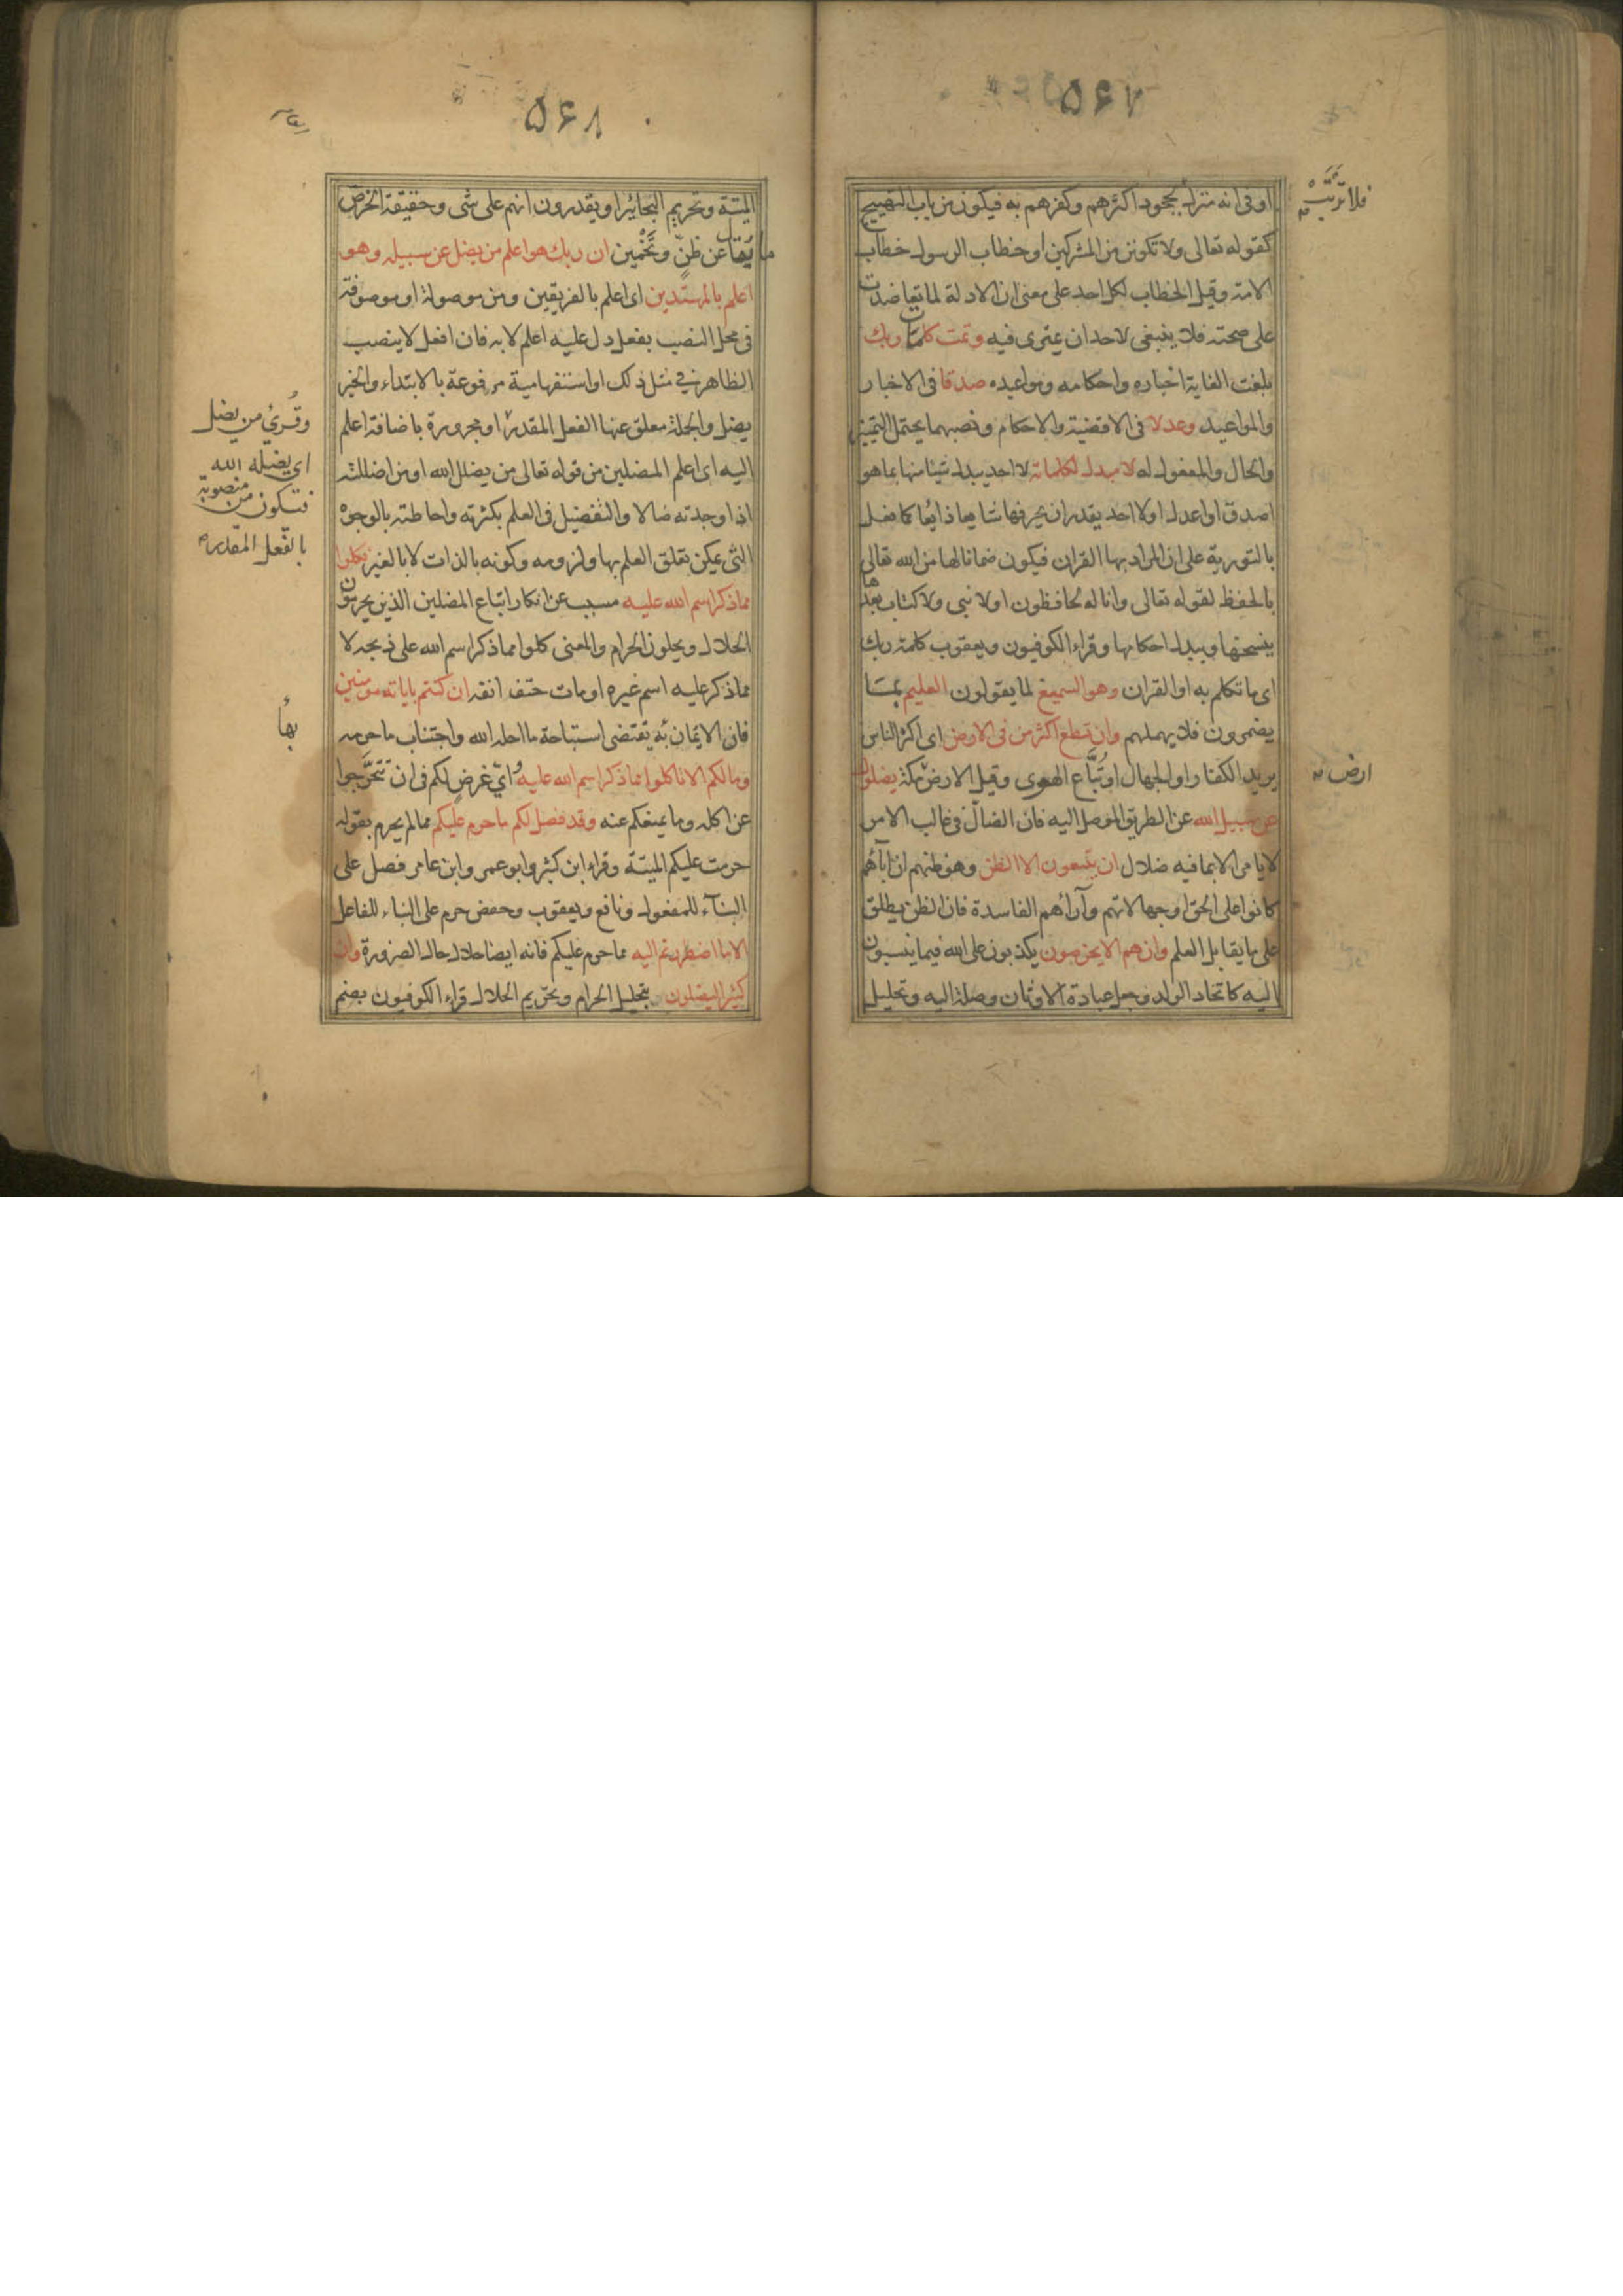 ۵۶۷
او فى انه منزل بجحود اكثرهم وكفرهم به فيكون من باب التهييج
فلا تريب
كقوله تعالى ولا تكونن من المشركين او خطاب الرسول خطاب
الامة وقيل الخطاب لكل احد على معنى ان الادلة لما تعاضدت
على صحته فلا ينبغى لاحد ان يمترى فيه وتمت كلمات ربك
بلغت الغاية اخباره واحكامه ومواعيده صدقا فى الاخبار
والمواعيد وعدلا فى الاقضية والاحكام ونصبهما يحتمل التميز
والحال والمفعول له لا مبدل لكلماته لا احد يبدل شيئا منها بما هو
اصدق او اعدل او لا احد يقدر ان يحرفها شايعا ذايعا كما فعل
بالتورية على ان المراد بها القران فيكون ضمانا لها من الله تعالى
بالحفظ لقوله تعالى وانا له لحافظون او لا نبى ولا كتاب بعدها
ينسخها ويبدل احكامها وقراء الكوفيون ويعقوب كلمة ربك
اى ما تكلم به او القران وهو السميع لما يقولون العليم بما
يضمرون فلا يهملهم وان تطع اكثر من فى الارض اى اكثر الناس
يريد الكفار او الجهال او تُبَّاع الهوى وقيل الارض مكة يضلوك
ارض
عن سبيل الله عن الطريق الموصل اليه فان الضالّ فى غالب الامر
لا يامر الا بما فيه ضلال ان يتبعون الا الظن وهو ظنهم ان آبآئهم
كانوا على الحق او جهالاتهم وآرآئهم الفاسدة فان الظن يطلق
على ما يقابل العلم وان هم الا يخرصون يكذبون على الله فيما ينسبون
اليه كاتخاد الولد وجعل عبادة الاوثان وصلة اليه وتحليل
۵۶۸
الميتة وتحريم البحائر او يقدرون انهم على شى وحقيقة الخرص
ما يقال عن ظنٍّ وتَخْمين ان ربك هو اعلم من يضل عن سبيله وهو
اعلم بالمهتدين اى اعلم بالفريقين ومن موصولة او موصوفة
فى محل النصب بفعل دل عليه اعلم لا به فان افعل لا ينصب
الظاهر فى مثل ذلك او استفهامية مرفوعة بالابتداء والخبر
يضل والجملة معلق عنها الفعل المقدر او مجرورة باضافة اعلم
وقُرئ من يضل
اى يضله الله
فتكون من منصوبة
بالفعل المقدر
اليه اى اعلم المضلين من قوله تعالى من يضلل الله او من اضللته
اذا وجدته ضالا والتفضيل فى العلم بكثرته واحاطته بالوجوه
التى يمكن تعلق العلم بها ولزومه وكونه بالذات لا بالغير فكلوا
مما ذكر اسم الله عليه مسبب عن انكار اتباع المضلين الذين يحرمون
الحلال ويحلون الحرام والمعنى كلوا مما ذكر اسم الله على ذبحه لا
مما ذكر عليه اسم غيره او مات حتف انفه ان كنتم باياته مومنين
فان الايمان به يقتضى استباحة ما احله الله واجتناب ما حرمه
بها
وما لكم الا تاكلوا مما ذكر اسم الله عليه وُاىّ غرضٍ لكم فى ان تتحرَّجوا
عن اكله وما يمنعكم عنه وقد فصل لكم ما حرم عليكم مما لم يحرم بقوله
حرمت عليكم الميتة وقراء ابن كثير وابو عمر وابن عامر فصل على
البنآء للمفعول ونافع ويعقوب وحفص حرم على البناء للفاعل
الا ما اضطررتم اليه مما حرم عليكم فانه ايضا حلال حال الضرورة وان
كثيرا ليضلون بتحليل الحرام وتحريم الحلال قراء الكوفيون بضم